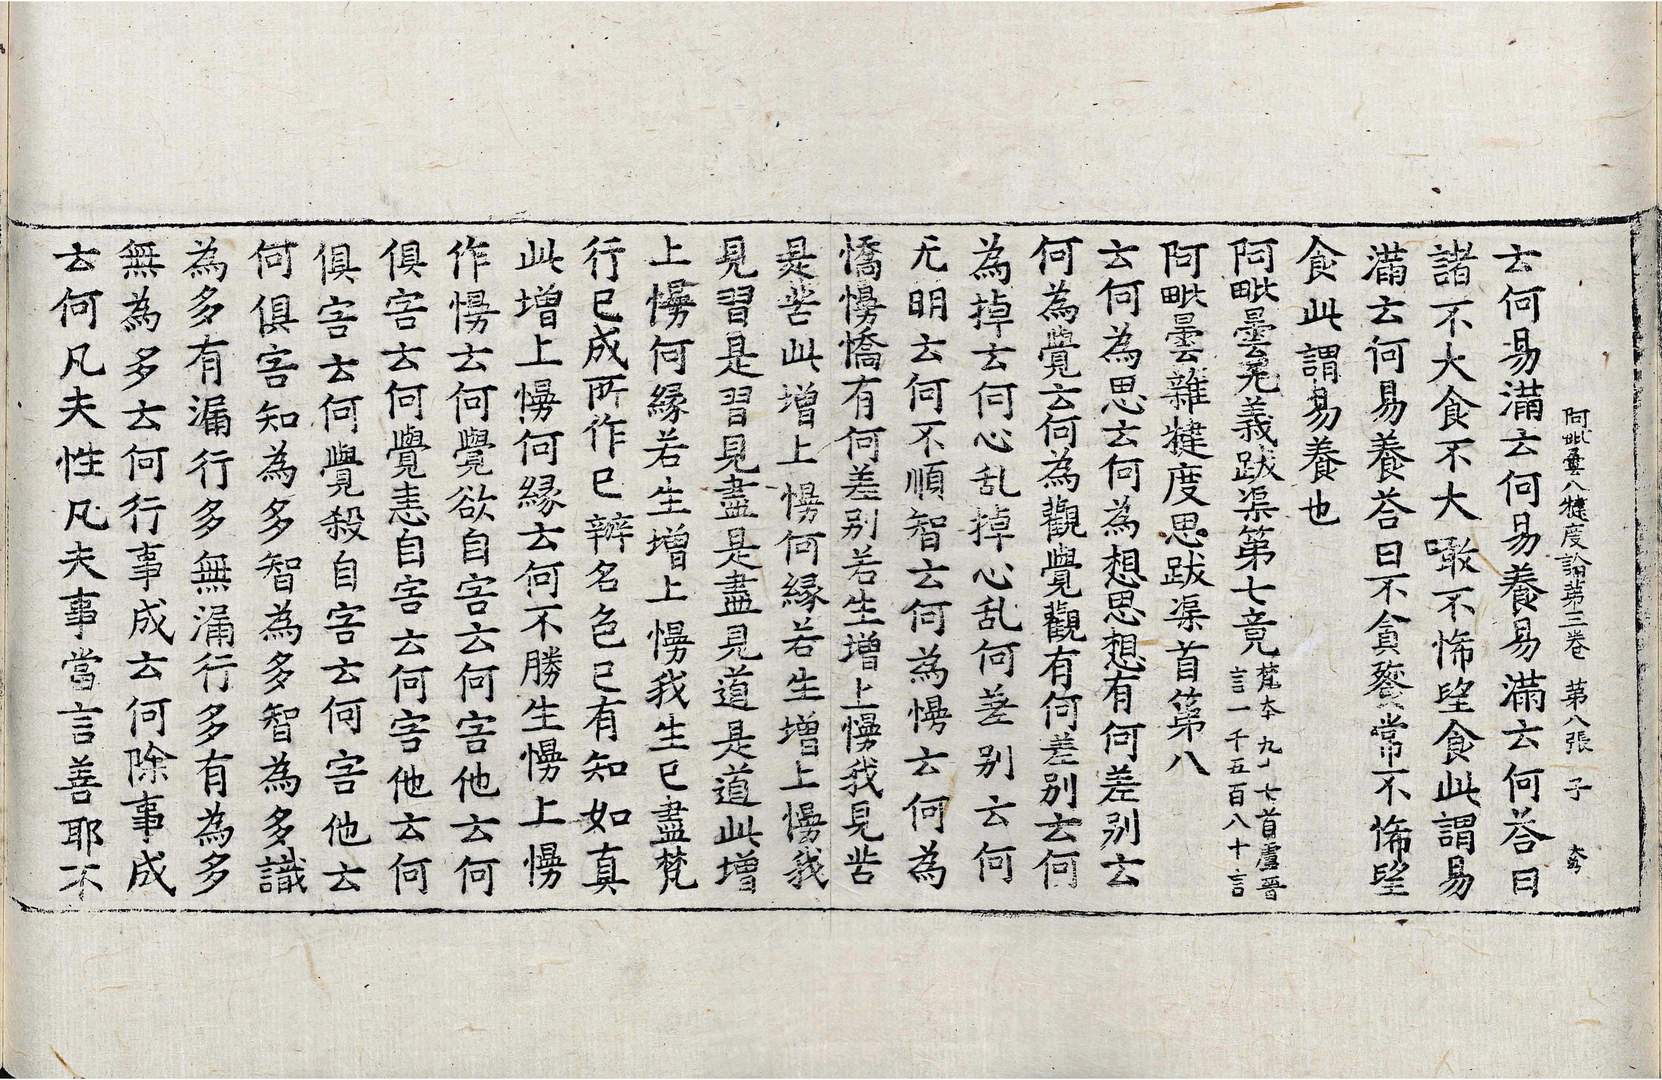 阿毗曇八犍度論第三卷 第八張 子
云何易滿云何易養易滿云何荅曰
諸不大食不大噉不悕望食此謂易
滿云何易養荅曰不貪餮常不悕望
食此謂易養也
阿毗曇无義跋渠第七竟梵本九十七首盧晉
言一千五百八十言
阿毗曇雜犍度思跋渠首第八
云何為思云何為想思想有何差別云
何為覺云何為觀覺觀有何差別云何
為掉云何心乱掉心乱何差別云何
无明云何不順智云何為慢云何為
憍慢憍有何差別若生增上慢我見苦
是苦此增上慢何緣若生增上慢我
見習是習見盡是盡見道是道此增
上慢何緣若生增上慢我生已盡梵
行已成所作已辦名色已有知如真
此增上慢何緣云何不勝生慢上慢
作慢云何覺欲自害云何害他云何
俱害云何覺恚自害云何害他云何
俱害云何覺殺自害云何害他云
何俱害知為多智為多智為多識
為多有漏行多無漏行多有為多
無為多云何行事成云何除事成
云何凡夫性凡夫事當言善耶不